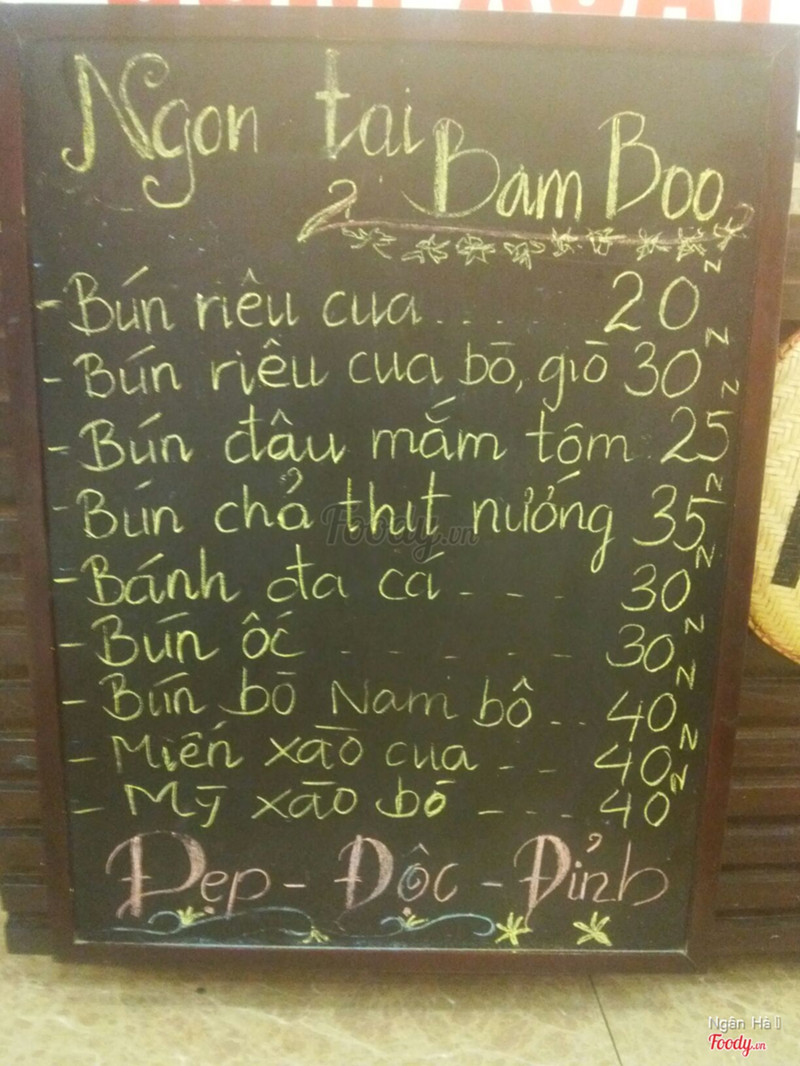 Ngon tại
Bam Boo
- Bún riêu cua .... 20N
- Bún riêu cua bò, giò 30N
- Bún đậu mắm tôm 25N
- Bún chả thịt nướng 35N
- Bánh đa cá - - - 30N
- Bún ốc - - - - - 30N
- Bún bò Nam bộ .. 40N
- Miến xào cua - - 40N
- Mỳ xào bò - - - 40N
Đẹp - Độc - Đỉnh
Foody.vn
Ngân Hà
Foody.vn